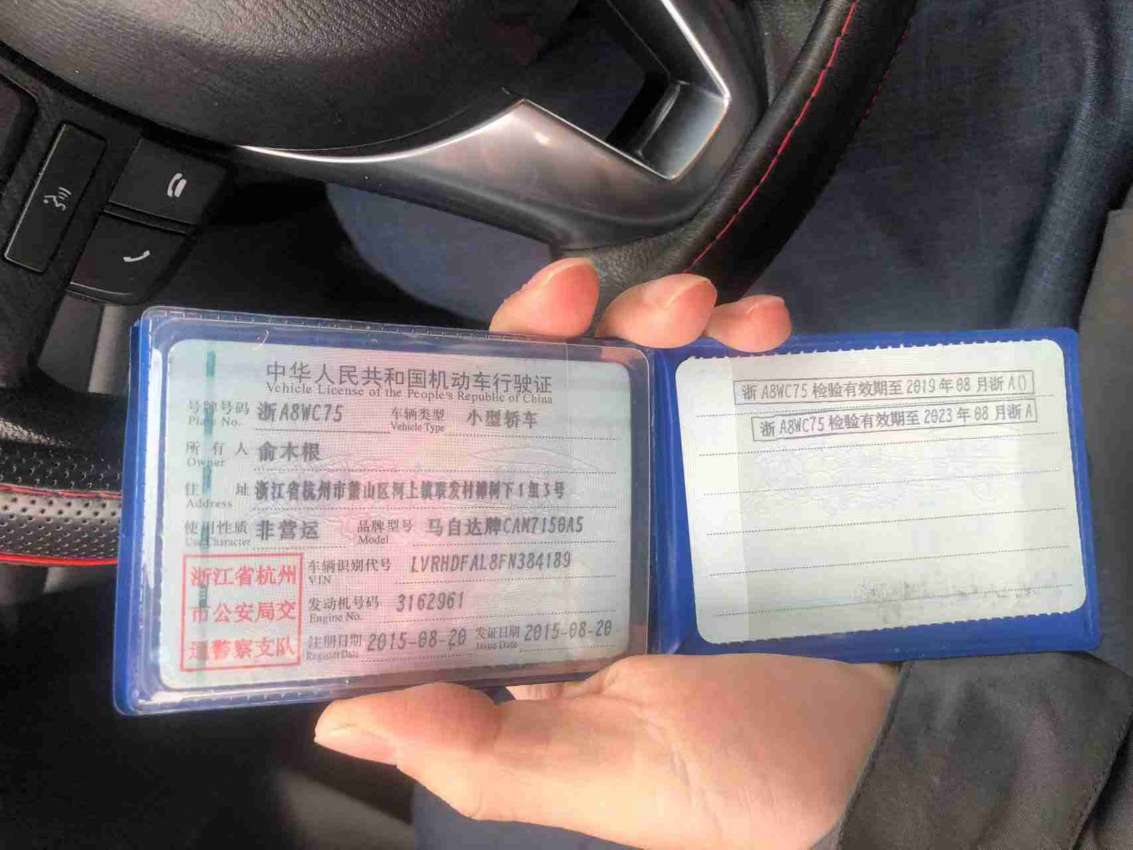 中华人民共和国机动车行驶证
Vehicle License of the People's Republic of China
号牌号码 浙A8WC75 车辆类型 小型轿车
Plate No. Vehicle Type
所有人 俞木根
Owner
住址 浙江省杭州市萧山区河上镇联发村樟树下1组3号
Address
使用性质 非营运 品牌型号 马自达牌CAM7150A5
Use Character Model
车辆识别代号 LVRHDFAL8FN384189
VIN
发动机号码 3162961
Engine No.
注册日期 2015-08-20 发证日期 2015-08-20
Register Date Issue Date
浙江省杭州
市公安局交
通警察支队
浙A8WC75 检验有效期至2019年08月浙A()
浙A8WC75 检验有效期至2023年08月浙A